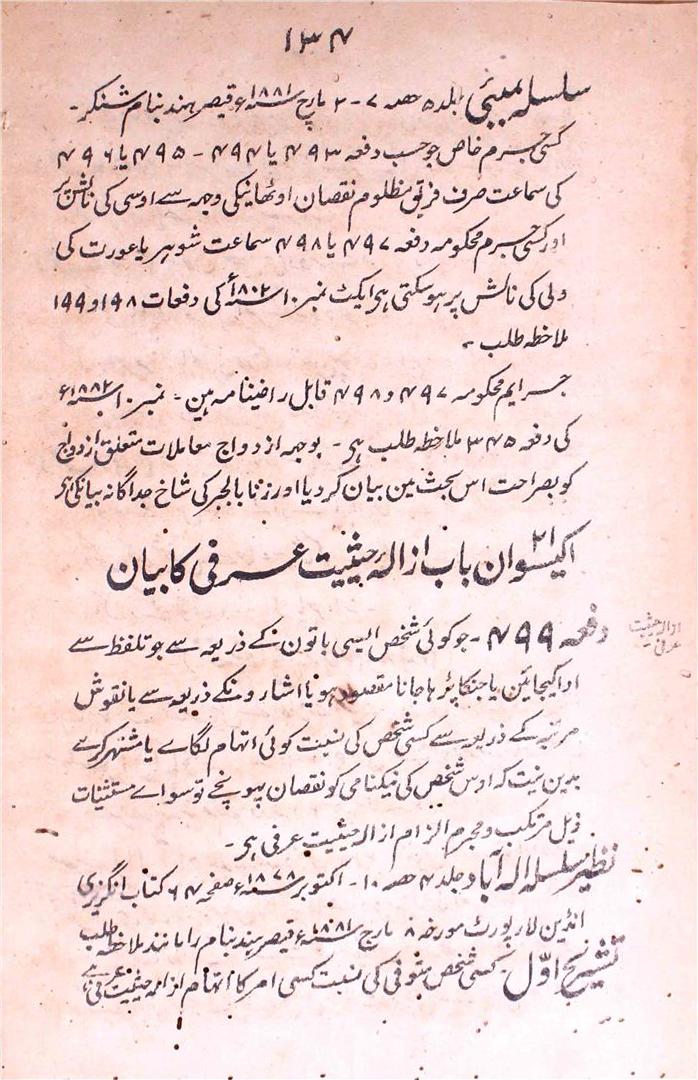 ۱۳۴
سلسلہ بمبئی جلد ۵ حصہ ۷ - ۲ مارچ ۱۸۸۱ء قیصر ہند بنام شنکر -
کسی جرم خاص جو حسب دفعہ ۴۹۳ یا ۴۹۴ - ۴۹۵ یا ۴۹۶
کی سماعت صرف فریق مظلوم نقصان اوٹھانیکی وجہہ سے اوسی کی نالش پر
اور کسی جرم محکومہ دفعہ ۴۹۷ یا ۴۹۸ سماعت شوہر یا عورت کی
ولی کی نالش پر ہو سکتی ہی ایکٹ نمبر ۱۰ کی دفعات ۱۹۸ و ۱۹۹
ملاحظہ طلب -
جرایم محکومہ ۴۹۷ و ۴۹۸ قابل راضینامہ ہین - نمبر ۱۰ ۱۸۸۲ء
کی دفعہ ۳۴۵ ملاحظہ طلب ہی - بوجہہ ازدواج معاملات متعلق ازدواج
کو بصراحت اس بحث مین بیان کر دیا اور زنا بالجبر کی شاخ جداگانہ بیان کی ہی
اکیسوان ۲۱ باب ازالہ حیثیت عرفی کا بیان
ازالہ حیثیت عرفی
دفعہ ۴۹۹ - جو کوئی شخص ایسی باتون کے ذریعہ سے جو تلفظ سے
ادا کیجایئن یا جنکا پڑھا جانا مقصود ہو یا اشارونکے ذریعہ سے یا نقوش
مرئیہ کے ذریعہ سے کسی شخص کی نسبت کوئی اتہام لگاے یا مشتہر کرے
بدین نیت کہ اوس شخص کی نیکنامی کو نقصان پہونچے تو سواے مستثنیات
ذیل مرتکب و مجرم الزام ازالہ حیثیت عرفی ہی -
نظیر سلسلہ الہ آباد جلد ۴ حصہ ۱۰ - اکتوبر ۱۸۷۸ء صفحہ ۶۴ کتاب انگریزی
انڈین لا رپورٹ مورخہ ۸ مارچ ۱۸۸۱ء قیصر ہند بنام راما نند ملاحظہ طلب
تشریح اوّل - کسی شخص متوفی کی نسبت کسی امر کا اتہام ازالہ حیثیت عرفی ہے